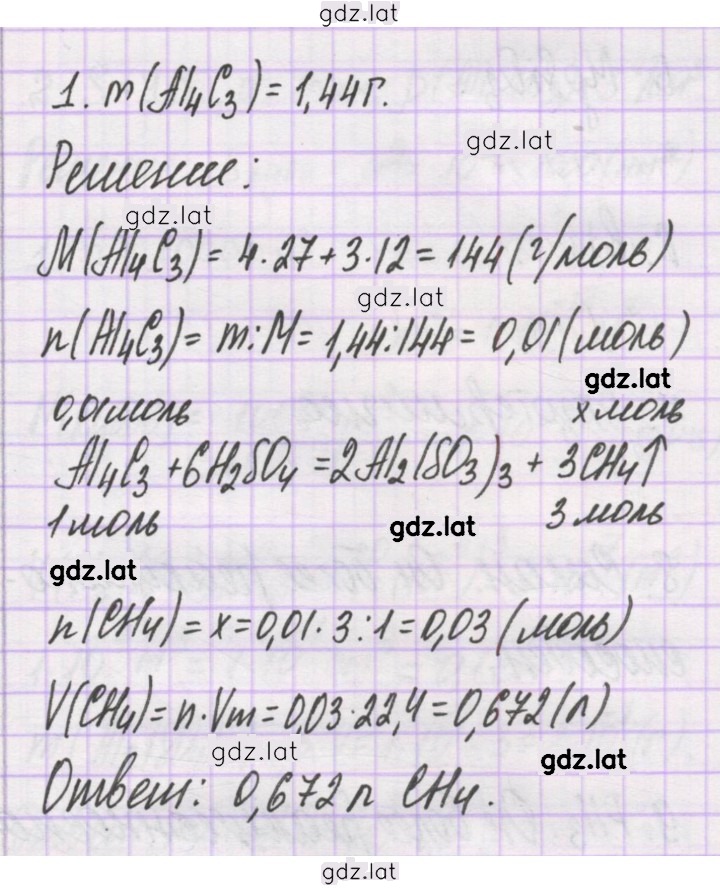 gdz.lat
1. m(Al4C3) = 1,44г.
gdz.lat
Решение:
gdz.lat
M(Al4C3) = 4·27+3·12 = 144(г/моль)
gdz.lat
n(Al4C3) = m:M = 1,44:144 = 0,01(моль)
gdz.lat
0,01моль x моль
Al4C3 + 6H2SO4 = 2Al2(SO3)3 + 3CH4↑
1 моль gdz.lat 3 моль
gdz.lat
n(CH4) = x = 0,01·3:1 = 0,03 (моль)
V(CH4) = n·Vm = 0,03·22,4 = 0,672(л)
gdz.lat gdz.lat
Ответ: 0,672 л CH4.
gdz.lat